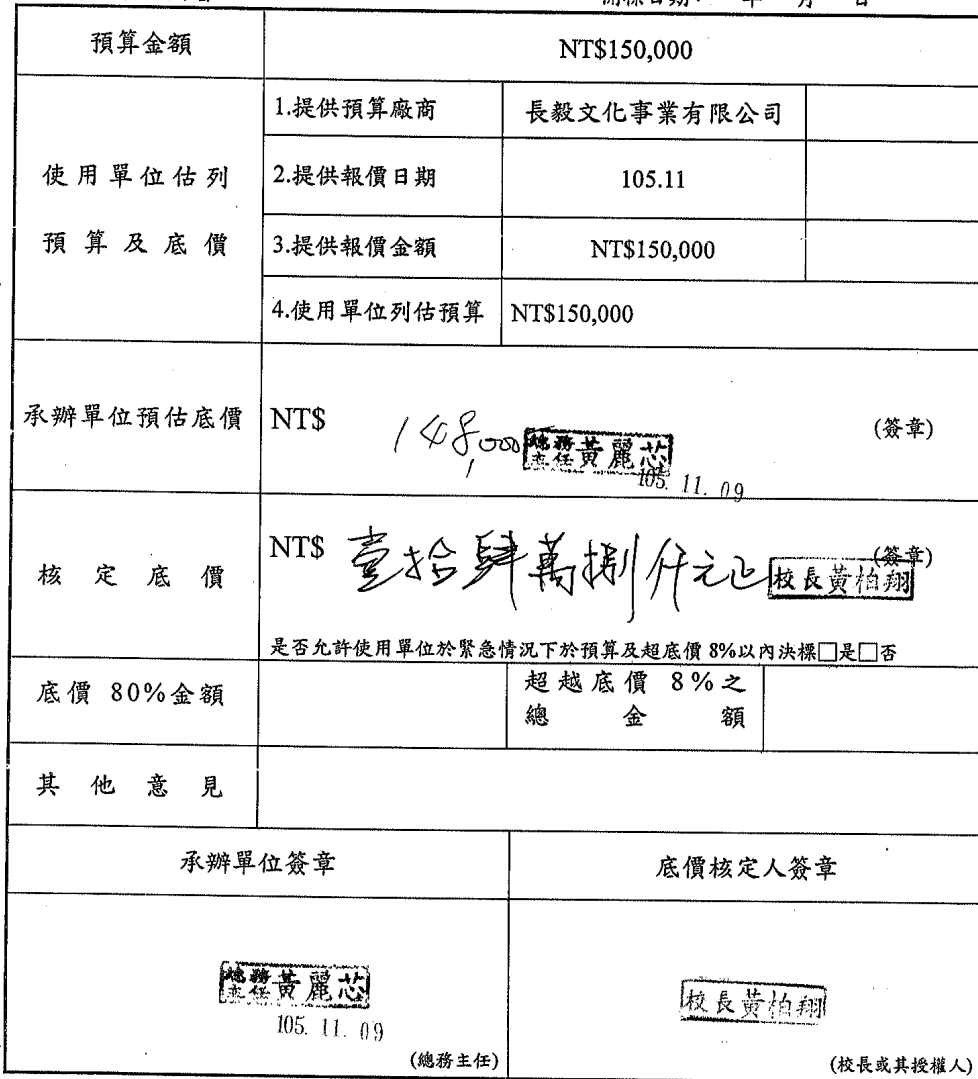 開標日期： 年 月 日
預算金額 NT$150,000
使用單位估列
預算及底價
1.提供預算廠商 長毅文化事業有限公司
2.提供報價日期 105.11
3.提供報價金額 NT$150,000
4.使用單位列估預算 NT$150,000
承辦單位預估底價 NT$ 148,000 總務主任黃麗芯 (簽章)
105. 11. 09
核定底價 NT$ 壹拾肆萬捌仟元正 校長黃柏翔 (簽章)
是否允許使用單位於緊急情況下於預算及超底價 8%以內決標□是□否
底價 80%金額
超越底價 8%之
總金額
其他意見
承辦單位簽章 底價核定人簽章
總務主任黃麗芯 校長黃柏翔
105. 11. 09
(總務主任) (校長或其授權人)